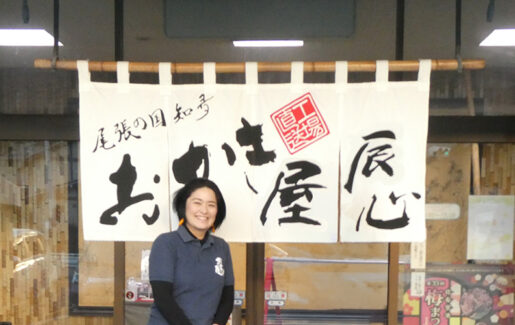 尾張の国 知多
おかき屋
工場
直送
辰心